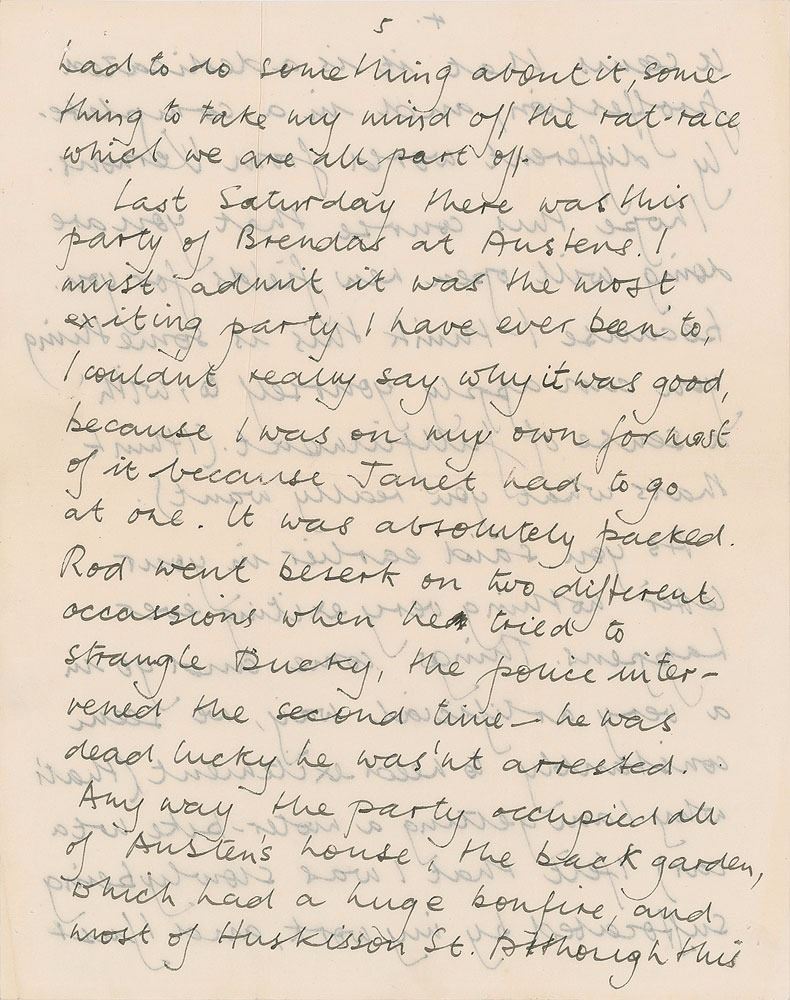 5
had to do something about it, some-
thing to take my mind off the rat-race
which we are all part off.
Last Saturday there was this
party of Brendas at Austens. I
must admit it was the most
exiting party I have ever been to,
I couldnt really say why it was good,
because I was on my own for most
of it because Janet had to go
at one. It was absolutely packed.
Rod went beserk on two different
occassions when he tried to
strangle Ducky, the police inter-
vened the second time – he was
dead lucky he was'nt arrested.
Any way the party occupied all
of Austen's house, the back garden,
which had a huge bonfire, and
most of Huskisson St. Although this